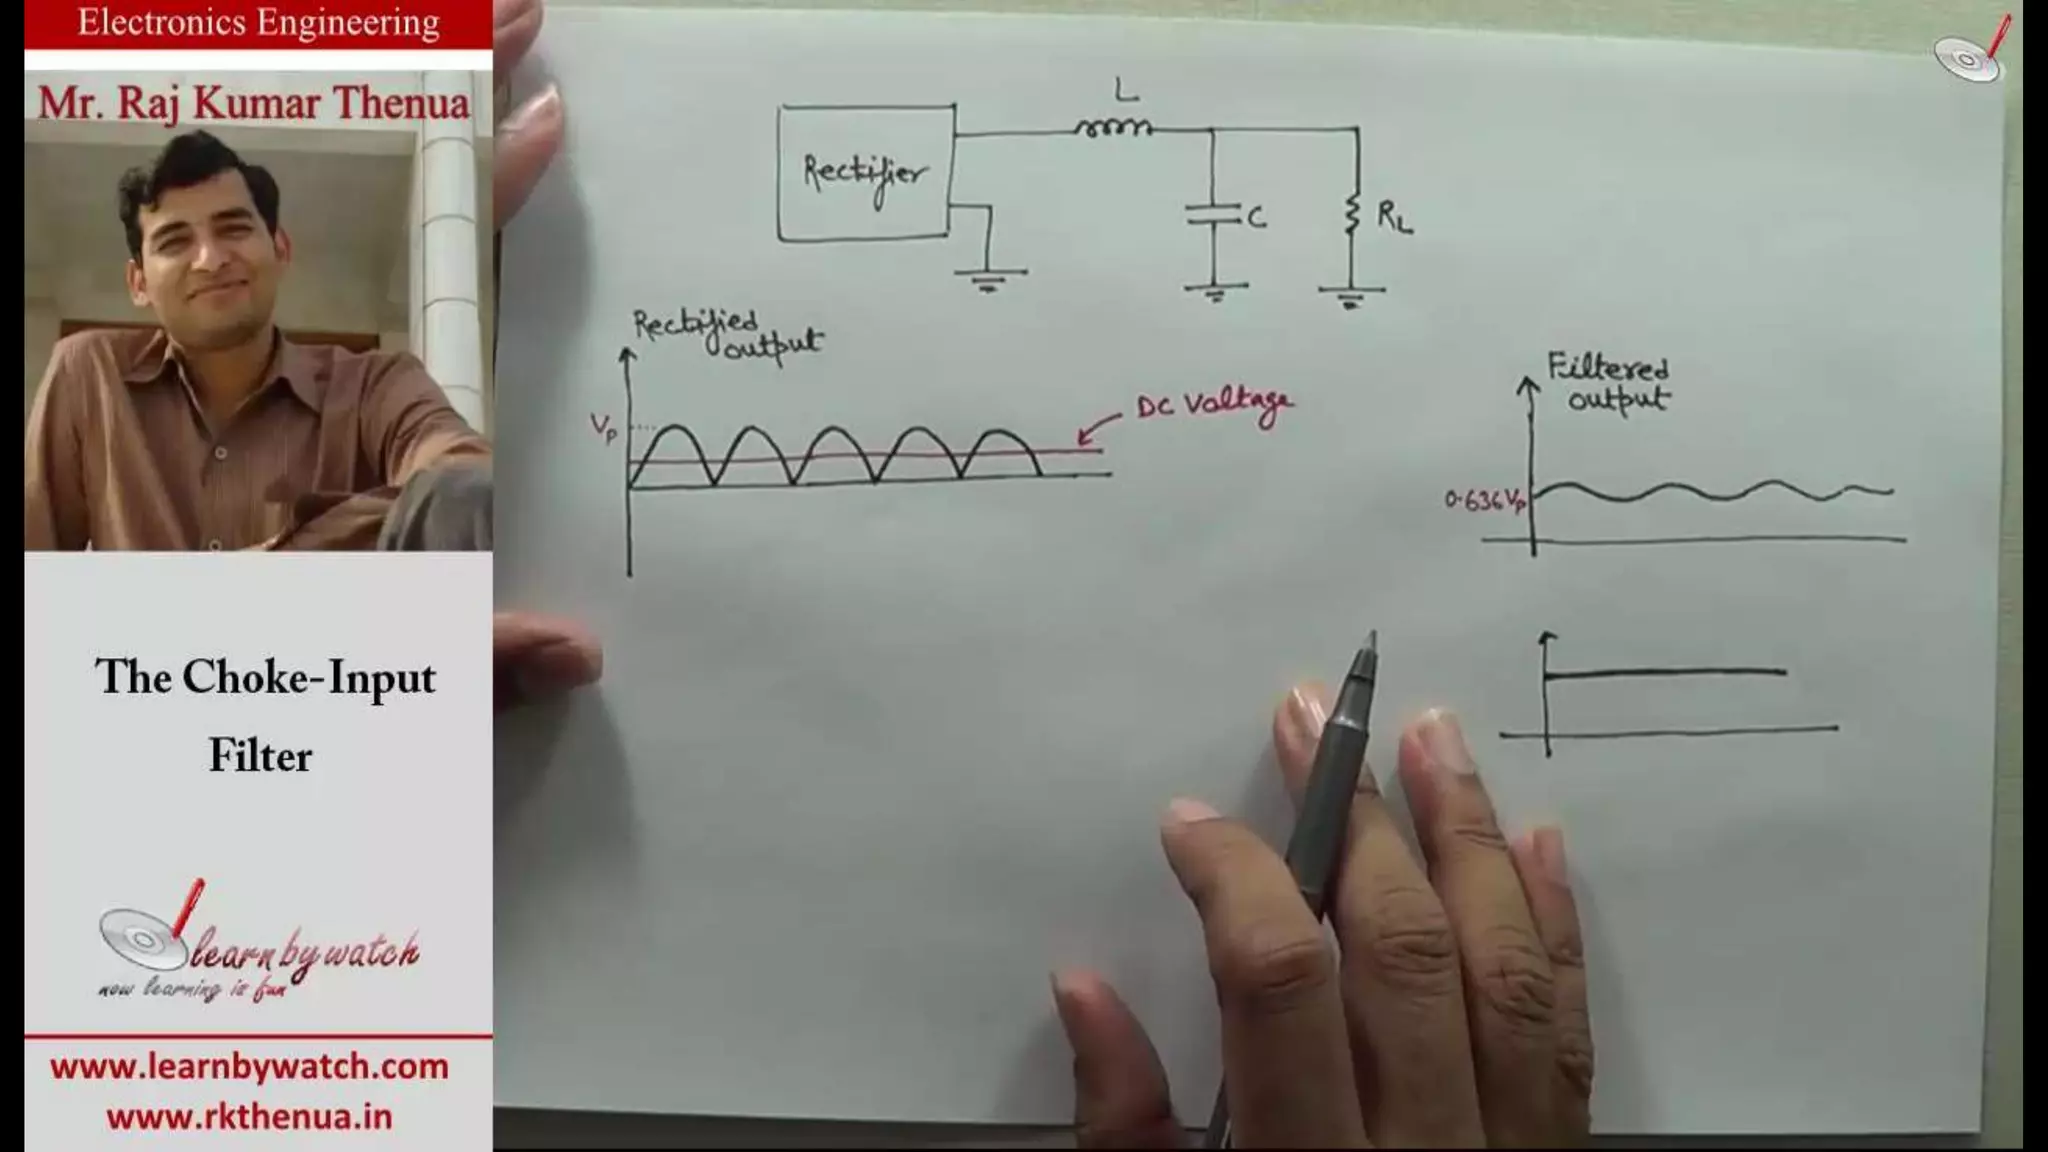 Electronics Engineering
Mr. Raj Kumar Thenua
The Choke-Input
Filter
learnbywatch
now learning is fun
www.learnbywatch.com
www.rkthenua.in
L
Rectifier
C
RL
Rectified
output
Vp
DC Voltage
Filtered
output
0.636Vp